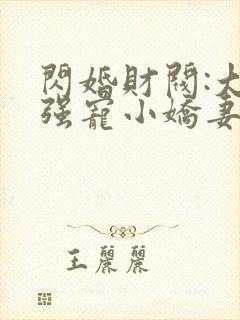 閃婚財閥:大
强寵小嬌妻
王麗麗